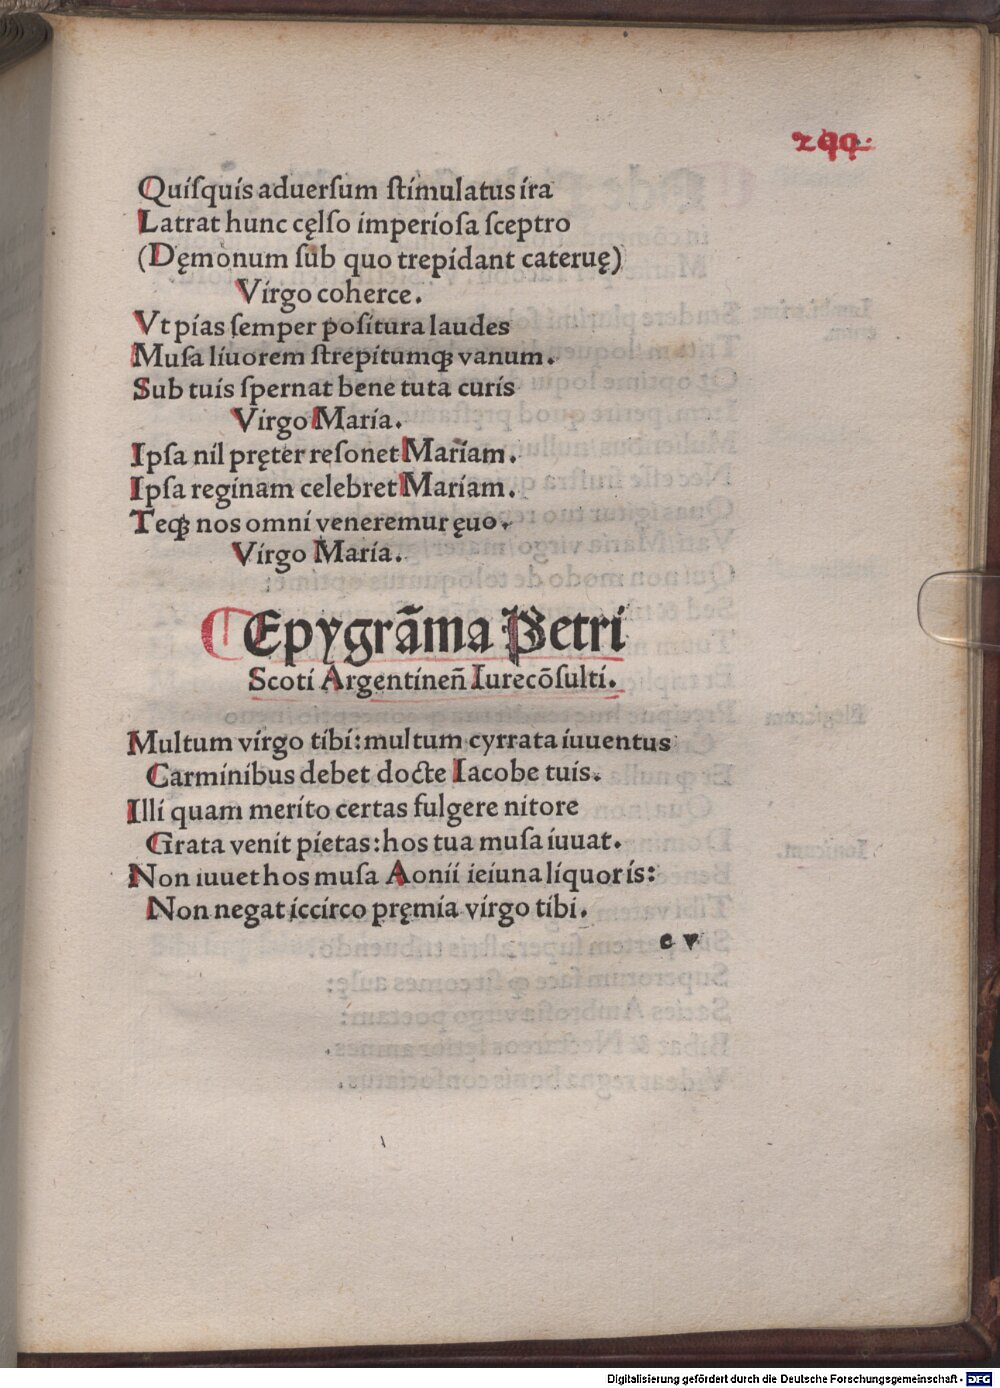 299.
Quiſquis aduerſum ſtimulatus ira
Latrat hunc cęlſo imperioſa ſceptro
(Dęmonum ſub quo trepidant cateruę)
Virgo coherce.
Vt pias ſemper poſitura laudes
Muſa liuorem ſtrepitumqꝫ vanum.
Sub tuis ſpernat bene tuta curis
Virgo Maria.
Ipſa nil pręter reſonet Mariam.
Ipſa reginam celebret Mariam.
Teqꝫ nos omni veneremur ęuo.
Virgo Maria.
Epygrāma Petri
Scoti Argentineñ Iurecōſulti.
Multum virgo tibi: multum cyrrata iuuentus
Carminibus debet docte Iacobe tuis.
Illi quam merito certas fulgere nitore
Grata venit pietas: hos tua muſa iuuat.
Non iuuet hos muſa Aonii ieiuna liquoris:
Non negat iccirco pręmia virgo tibi.
e v
Digitalisierung gefördert durch die Deutsche Forschungsgemeinschaft - DFG